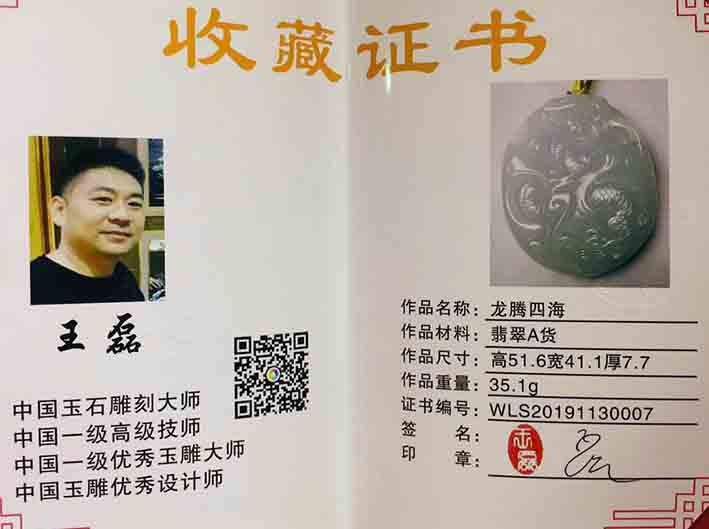 收藏证书
王磊
中国玉石雕刻大师
中国一级高级技师
中国一级优秀玉雕大师
中国玉雕优秀设计师
作品名称：龙腾四海
作品材料：翡翠A货
作品尺寸：高51.6宽41.1厚7.7
作品重量：35.1g
证书编号：WLS20191130007
签 名：
印 章：
王磊